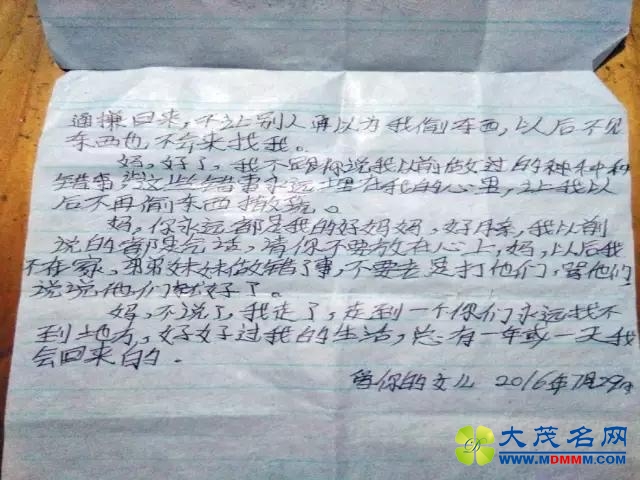 通撵回来，不让别人再以为我偷东西，以后不见
东西也不会来找我。
妈，好了，我不跟你说我以前做过的种种种
错事，这些错事永远埋在我的心里，让我以
后不再偷东西撒谎。
妈，你永远都是我的好妈妈，好母亲，我以前
说的都是气话，请你不要放在心上，妈，以后我
不在家，弟弟妹妹做错了事，不要老是打他们，留他们
说说他们就好了。
妈，不说了，我走了，走到一个你们永远找不
到地方，好好过我的生活，总有一年或一天我
会回来自的。
你的女儿 2016年7月29日
大茂名网
WWW.MDMMM.COM